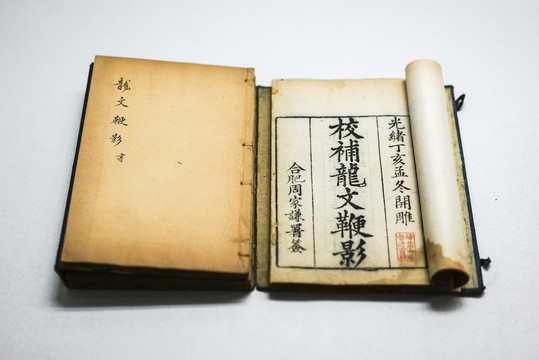 龍文鞭影
光緒丁亥孟冬開雕
校補龍文鞭影
合肥周家謙署簽